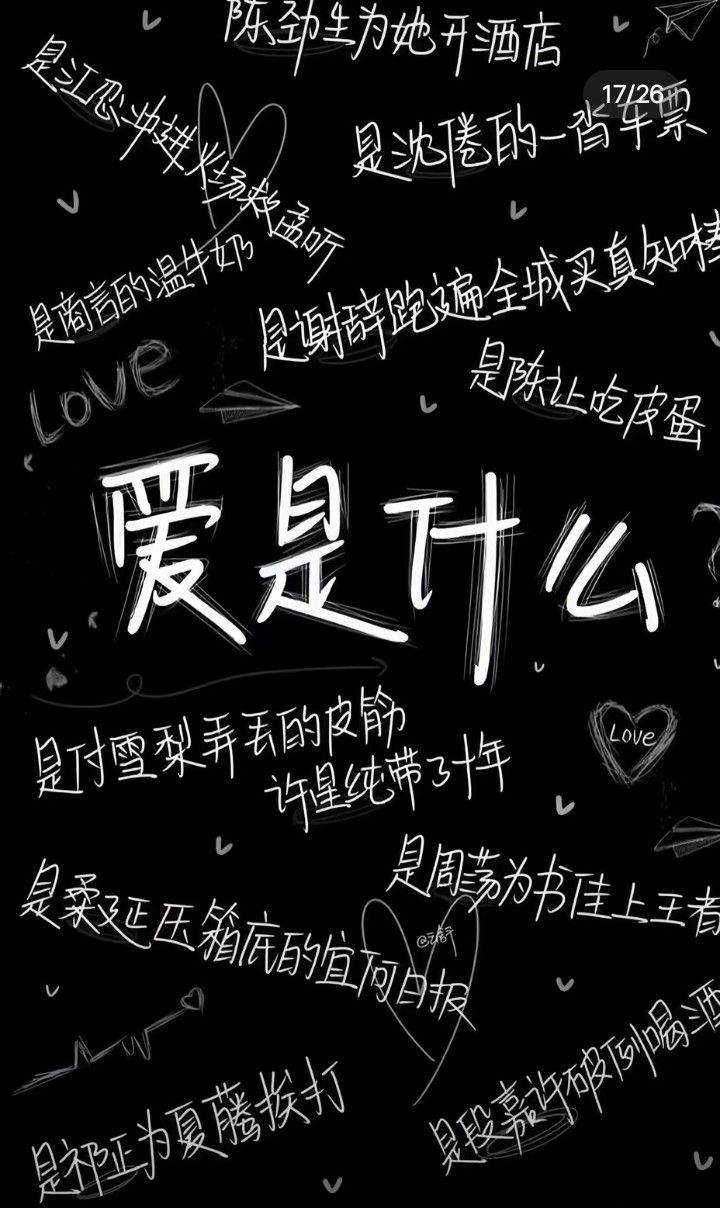 陈劲生为她开酒店
17/26
是江忍冲进火场救孟听
是沈倦的一沓车票
是商言的温牛奶
是谢辞跑遍全城买真知棒
Love
是陈让吃皮蛋
爱是什么
是付雪梨弄丢的皮筋
许星纯带了十年
Love
是周荡为书佳上王者
是桑延压箱底的宜荷日报
是段嘉许破例喝酒
是祁正为夏藤挨打